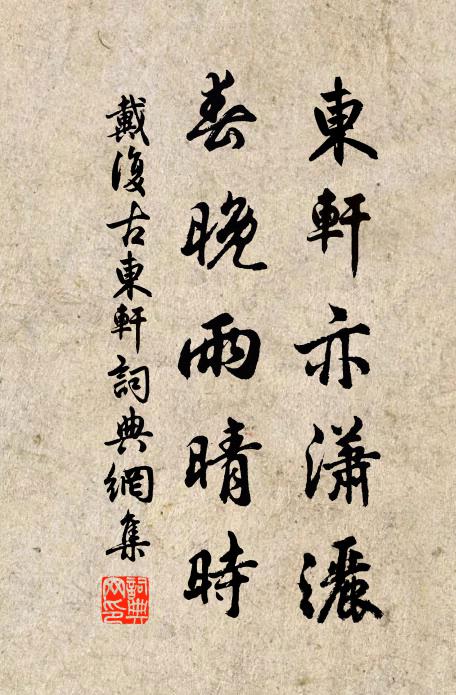 東軒亦瀟灑
春晚雨晴時
戴復古東軒詞典網集
詞典網印